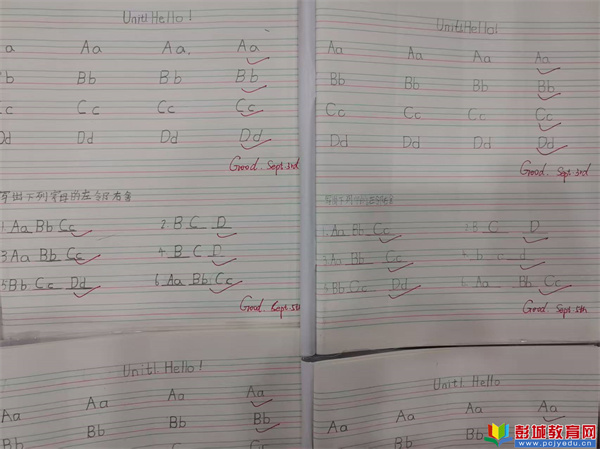 Unit1 Hello!
a Aa Aa. Aa
b Bb Bb Bb
c Cc Cc Cc
Dd Dd Dd Dd
Good. Sept. 3rd
写出下列字母的左邻右舍
1. Aa Bb Cc 2. B C D
3. Aa Bb Cc 4. B C D
5. Bb Cc Dd 6. Aa Bb Cc
Good. Sept. 5th
Unit1 Hello!
Aa Aa Aa Aa
Bb Bb Bb Bb
Cc Cc Cc Cc
Dd Dd Dd Dd
Good. Sept. 3rd
1. Aa Bb Cc 2. B C D
3. Aa Bb Cc 4. b c d
5. Bb Cc Dd 6. Aa Bb Cc
Good. Sept. 5th
Unit1. Hello!
Aa Aa Aa Aa
Bb Bb Bb Bb
Unit1. Hello
Aa Aa Aa Aa
Bb Bb
彭城教育网
www.pcjyedu.cn